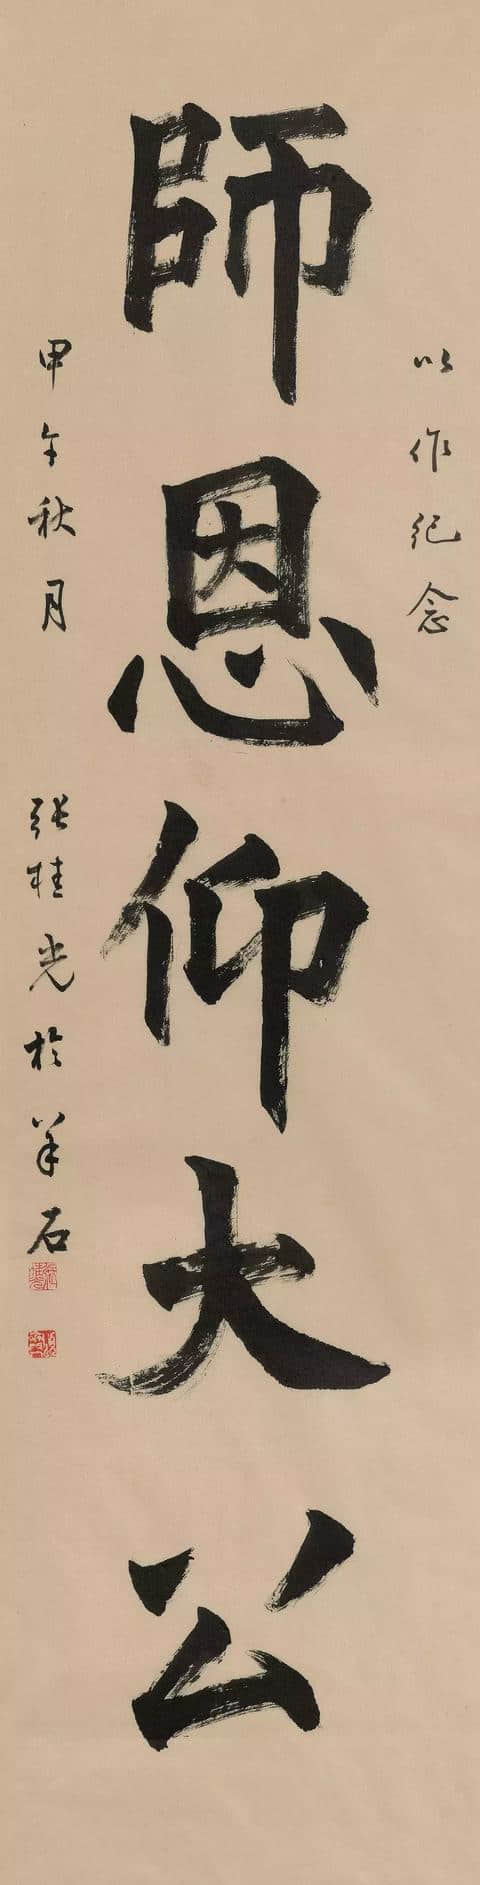 以作紀念
師恩仰大公
甲午秋月 張桂光於羊石